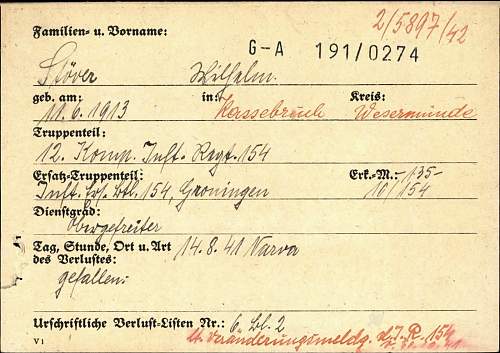 2/5897/42
Familien- u. Vorname:
G-A 191/0274
Stöver Wilhelm.
geb. am: in: Kreis:
11.6.1913 Kassebruch Wesermünde
Truppenteil:
12. Komp. Inft. Regt. 154
Ersatz-Truppenteil: Erk.-M.: -135-
Inft. Ers. Btl. 154, Groningen 10/154
Dienstgrad:
Obergefreiter
Tag, Stunde, Ort u. Art 14.8.41 Narva
des Verlustes:
gefallen.
Urschriftliche Verlust-Listen Nr.: 6 Bl. 2
lt. Veränderungsmeldg. d. I.R. 154
V 1